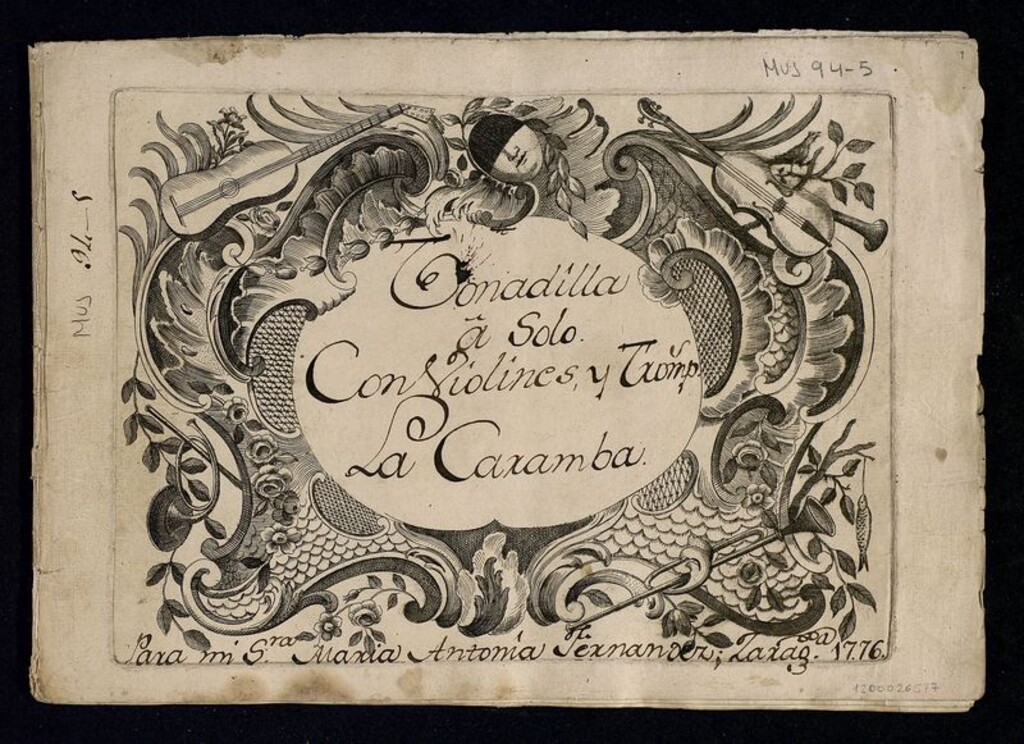 MUS 94-5
MUS 94-5
Tonadilla
â Solo.
Con Violines, y Tromp.s
La Caramba.
Para mi S.ra Maria Antonia Fernandez; Zarag.za 1776.
1200026577